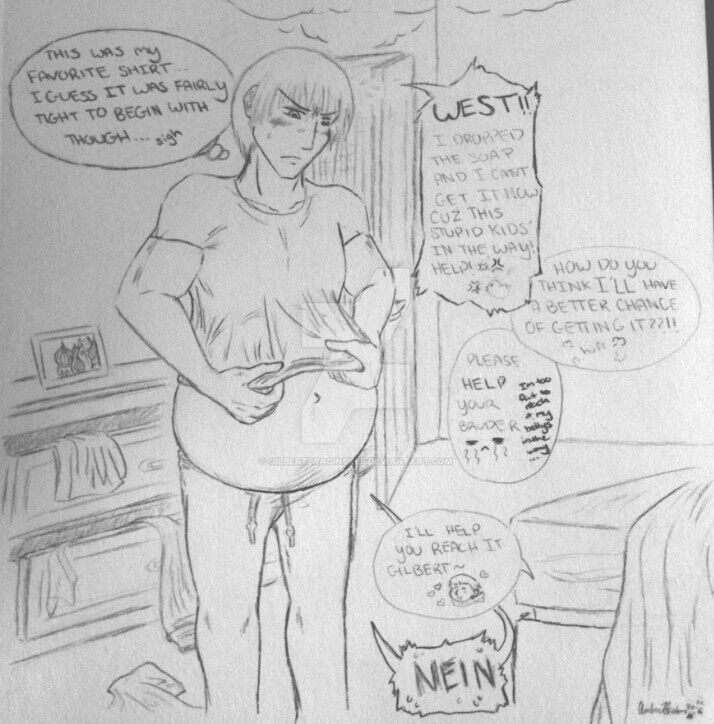 THIS WAS MY
FAVORITE SHIRT...
I GUESS IT WAS FAIRLY
TIGHT TO BEGIN WITH
THOUGH... sigh
WEST!!
I DROPPED
THE SOAP
AND I CAN'T
GET IT NOW
CUZ THIS
STUPID KIDS'
IN THE WAY!
HELP!
HOW DO YOU
THINK I'LL HAVE
A BETTER CHANCE
OF GETTING IT??!!
huff
PLEASE
HELP
YOUR
BRUDER
I'm too
fat to
reach
it my
belly's
in the
way
I'LL HELP
YOU REACH IT
GILBERT~
NEIN